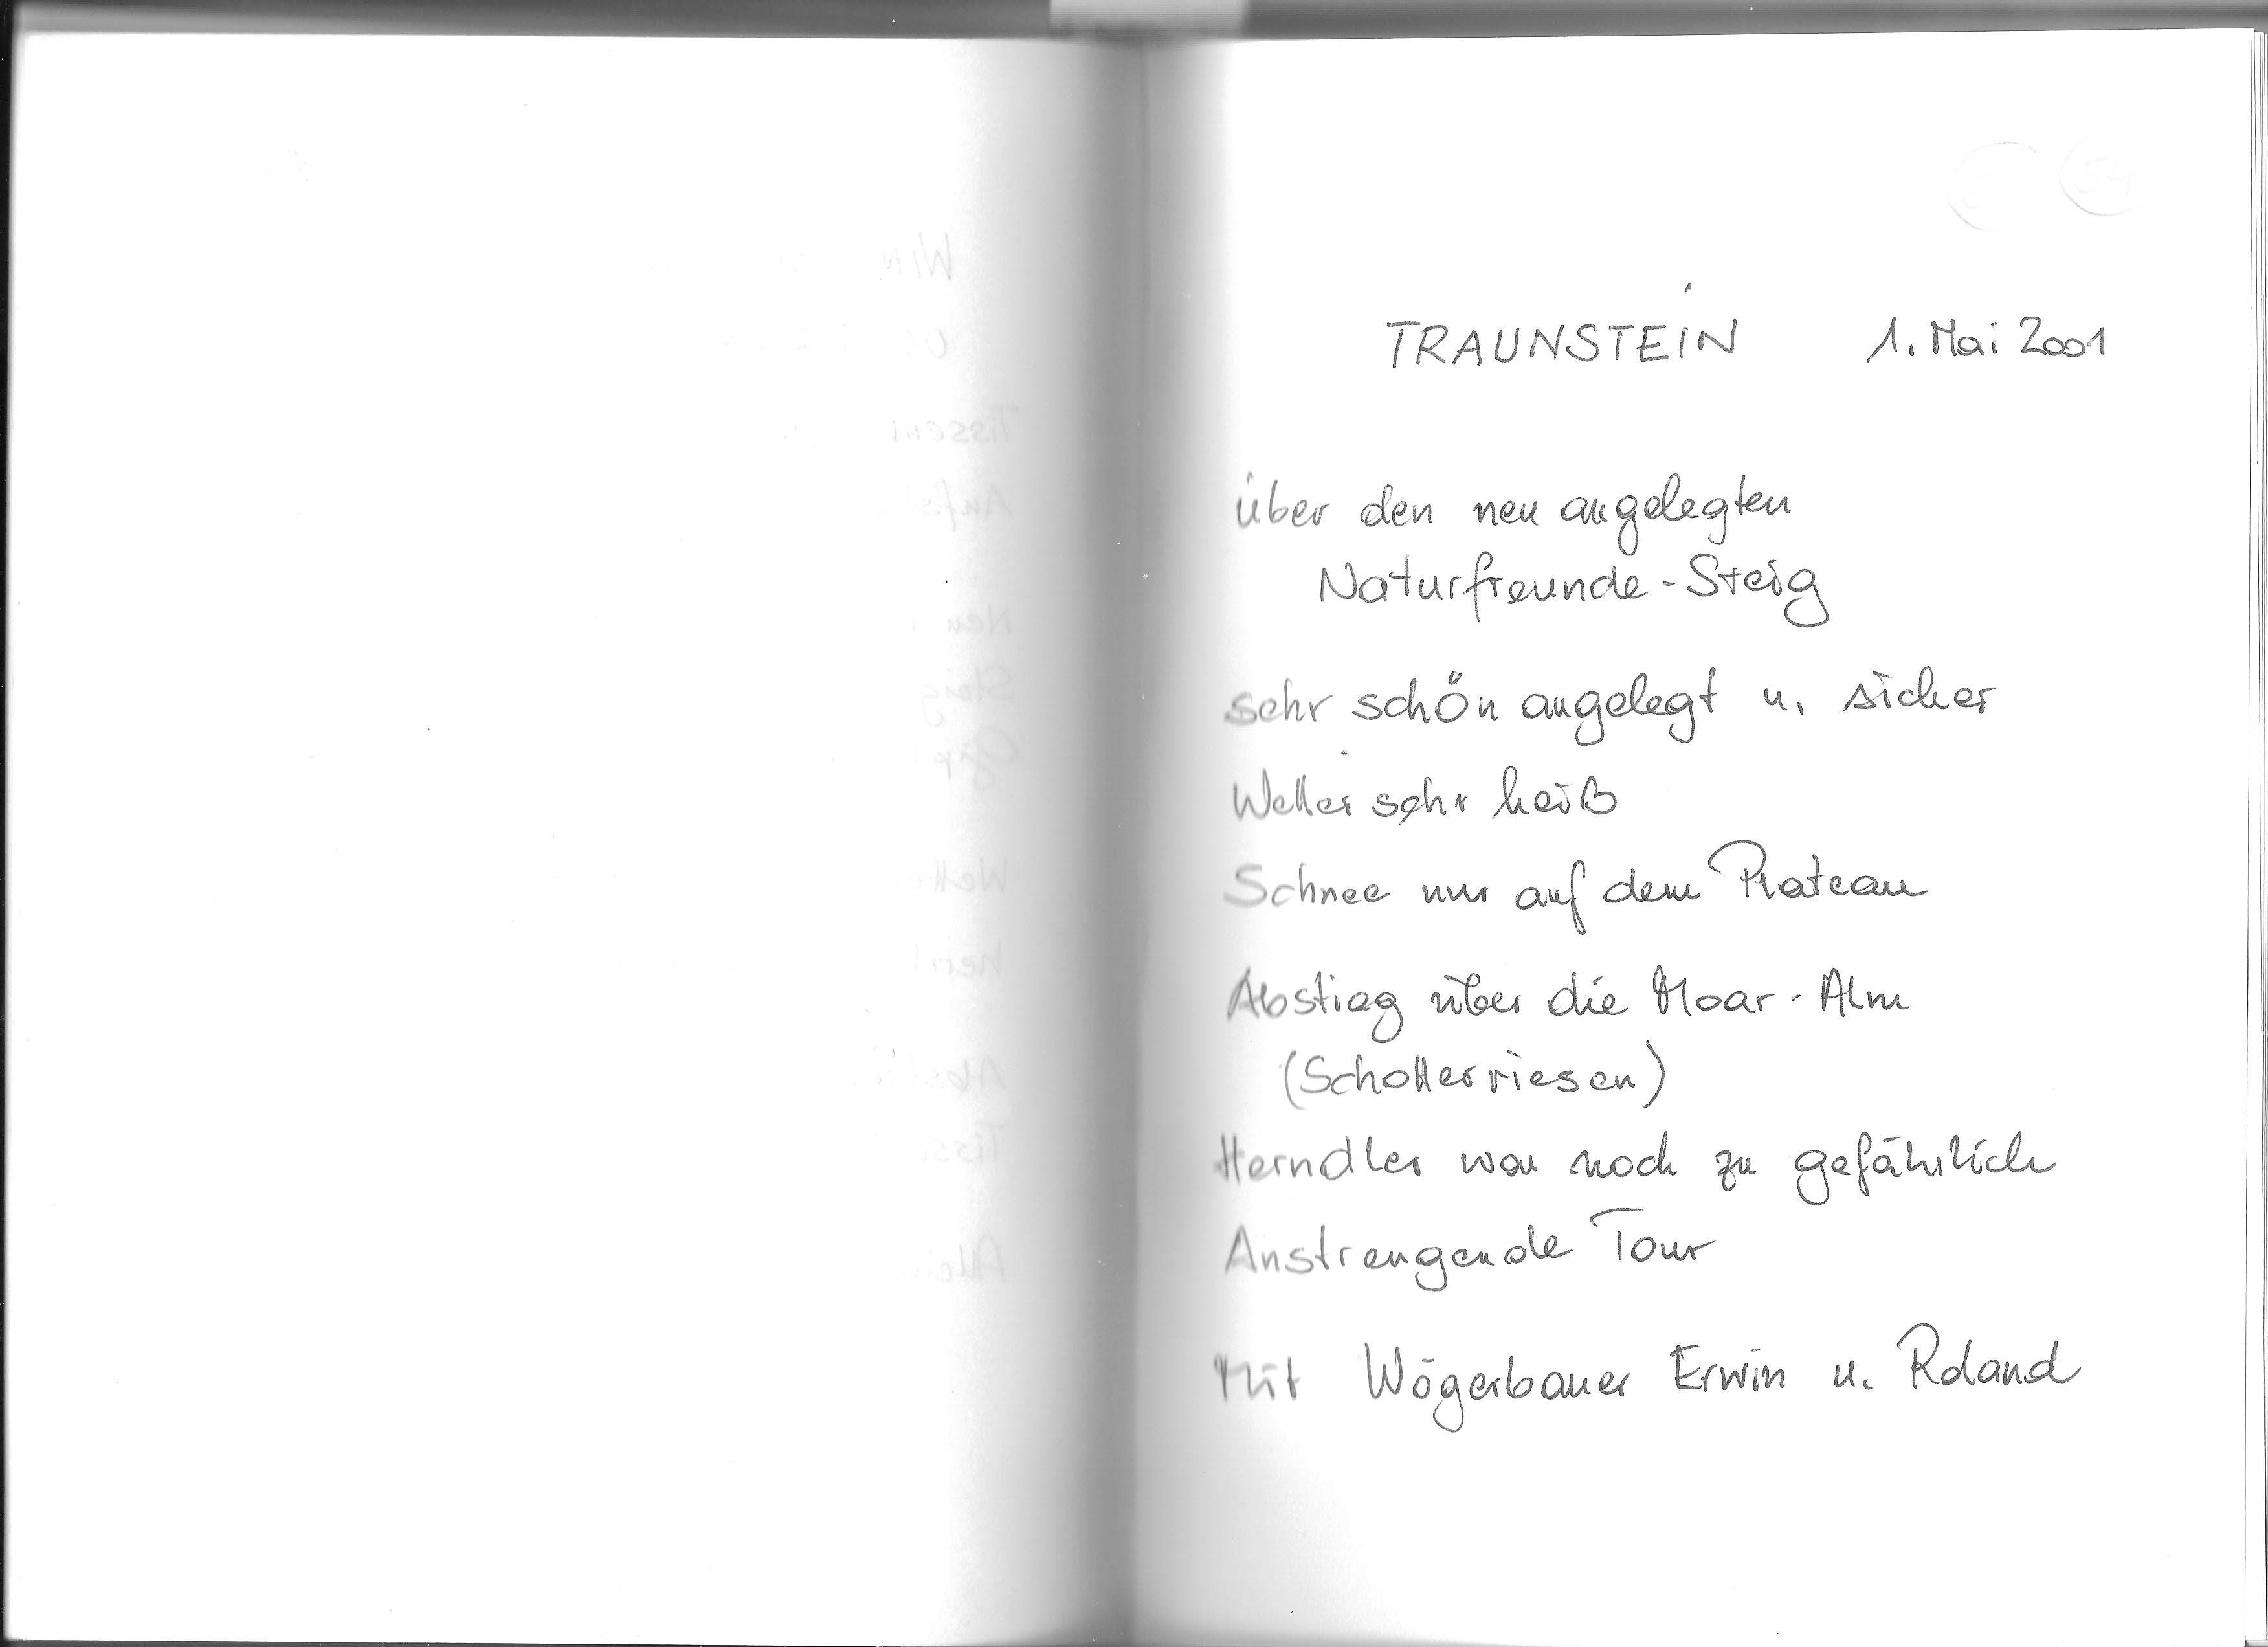 TRAUNSTEIN 1. Mai 2001
über den neu angelegten
Naturfreunde-Steig
sehr schön angelegt u. sicher
Wetter sehr heiß
Schnee nur auf dem Plateau
Abstieg über die Moar-Alm
(Schotterriesen)
Herndler war noch zu gefährlich
Anstrengende Tour
Mit Wögerbauer Erwin u. Roland